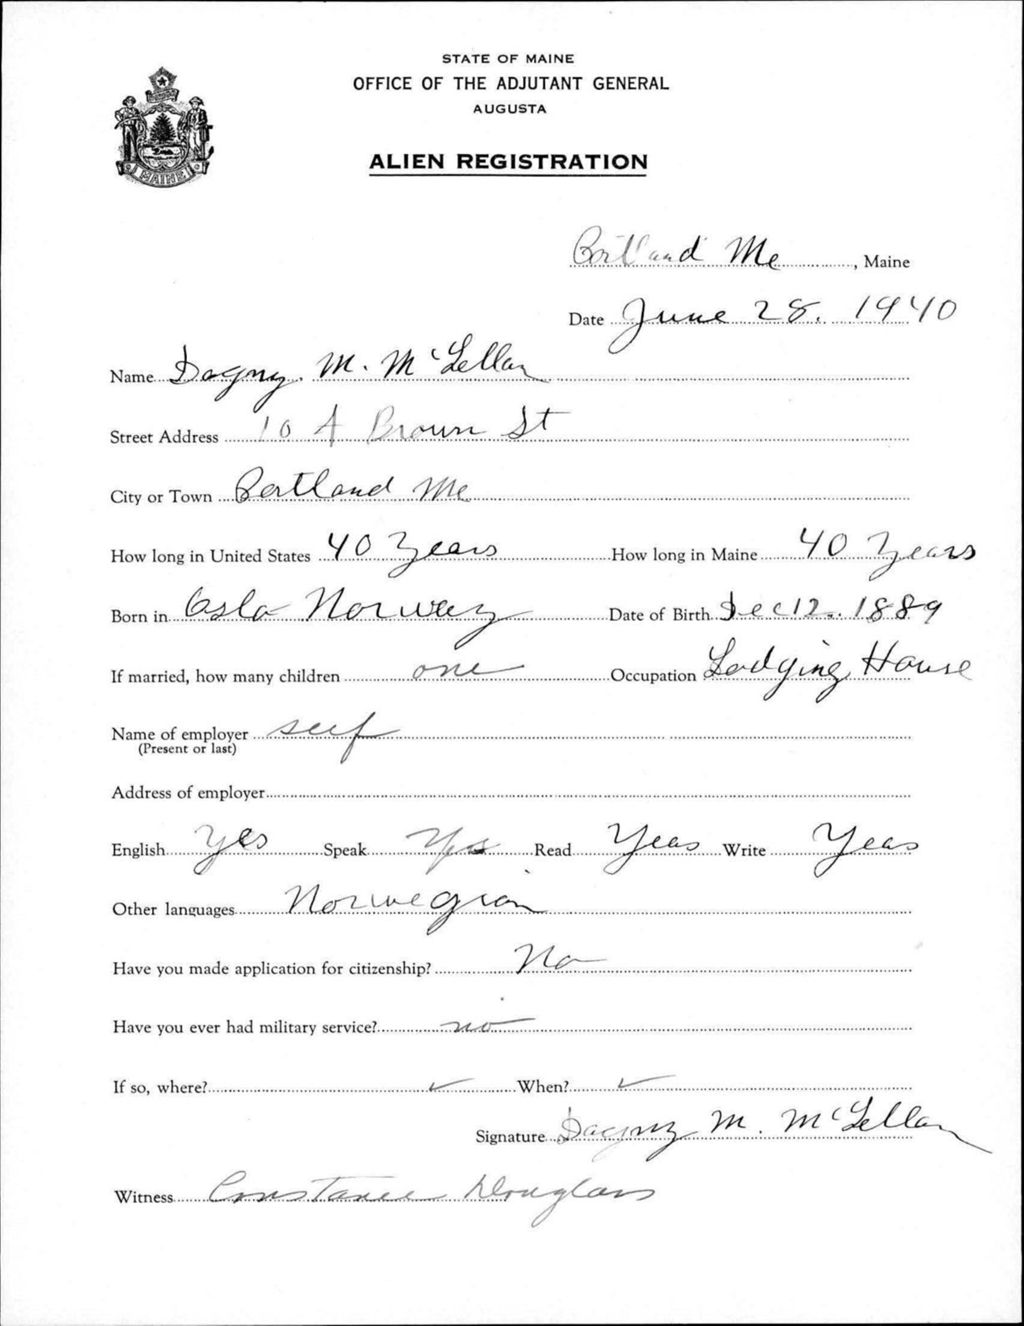 STATE OF MAINE
OFFICE OF THE ADJUTANT GENERAL
AUGUSTA
MAINE
ALIEN REGISTRATION
Portland Me, Maine
Date June 28. 1940
Name Dagny. M. McLellan
Street Address 10 A Brown St
City or Town Portland Me
How long in United States 40 Years How long in Maine 40 Years
Born in Oslo Norway Date of Birth Dec 12. 1889
If married, how many children one Occupation Lodging House
Name of employer self
(Present or last)
Address of employer
English Yes Speak Yes Read Yeas Write Yeas
Other languages Norwegian
Have you made application for citizenship? No
Have you ever had military service? no
If so, where? ✓ When? ✓
Signature Dagny M. McLellan
Witness Constance Douglass